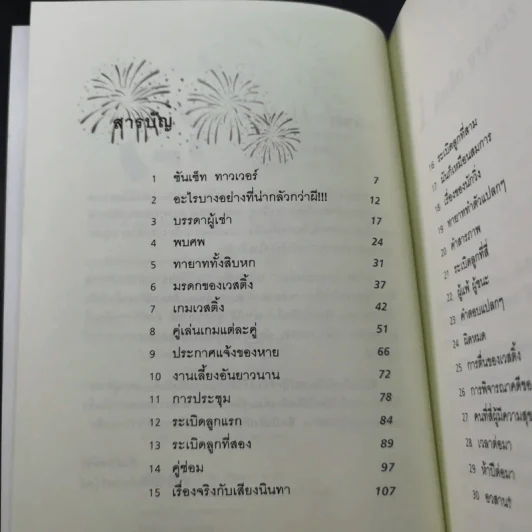 สารบัญ
1 ซันเซ็ท ทาวเวอร์ 7
2 อะไรบางอย่างที่น่ากลัวกว่าผี!!! 12
3 บรรดาผู้เช่า 17
4 พบศพ 24
5 ทายาททั้งสิบหก 31
6 มรดกของเวสติ้ง 37
7 เกมเวสติ้ง 42
8 คู่เล่นเกมแต่ละคู่ 51
9 ประกาศแจ้งของหาย 66
10 งานเลี้ยงอันยาวนาน 72
11 การประชุม 78
12 ระเบิดลูกแรก 84
13 ระเบิดลูกที่สอง 89
14 คู่ซ่อม 97
15 เรื่องจริงกับเสียงนินทา 107
16 ระเบิดลูกที่สาม
17 มันก็เหมือนสมการ
18 เรื่องของนักวิ่ง
19 ทายาททำตัวแปลกๆ
20 คำสารภาพ
21 ระเบิดลูกที่สี่
22 ผู้แพ้ ผู้ชนะ
23 คำตอบแปลกๆ
24 ผิดหมด
25 การตื่นของเวสติ้ง
26 การพิจารณาคดีของ
27 คนที่สี่ผู้มีความสุข
28 เวลาต่อมา
29 ห้าปีต่อมา
30 อวสาน